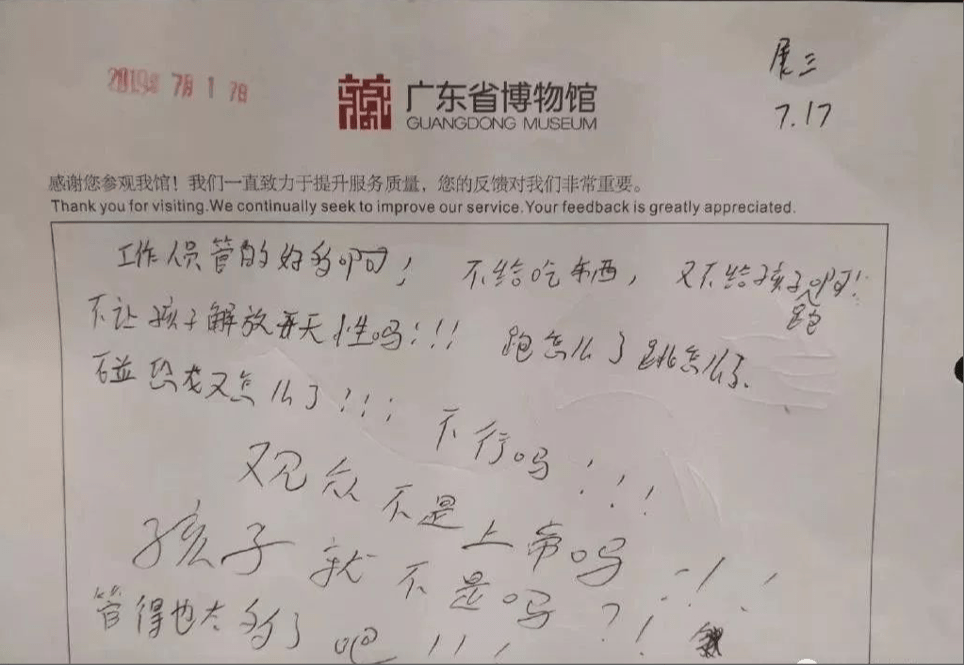 2019年 7月 1 7日
展三
7.17
广东省博物馆
GUANGDONG MUSEUM
感谢您参观我馆！我们一直致力于提升服务质量，您的反馈对我们非常重要。
Thank you for visiting.We continually seek to improve our service.Your feedback is greatly appreciated.
工作人员管的好多啊！ 不给吃东西，又不给孩子跑啊！
不让孩子解放天性吗！！！ 跑怎么了跳怎么了.
碰恐龙又怎么了！！！ 不行吗！！！
观众不是上帝吗！！！
孩子就不是吗？！
管得也太多了吧！！！